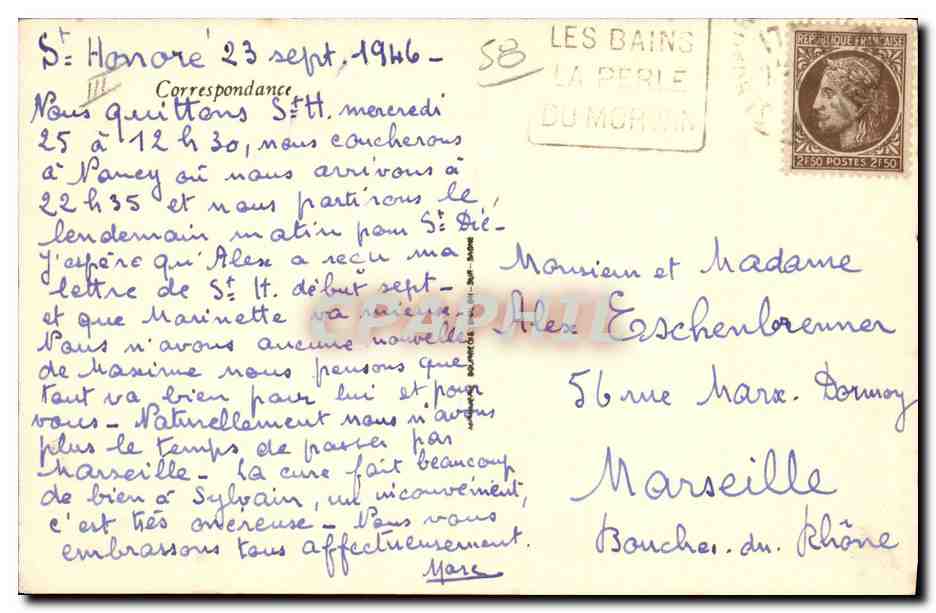 St Honoré 23 sept. 1946 -
III
Correspondance
Nous quittons St H. mercredi
25 à 12 h 30, nous coucherons
à Nancy où nous arrivons à
22 h 35 et nous partirons le
lendemain matin pour St Dié -
J'espère qu'Alex a reçu ma
lettre de St H. début sept -
et que Marinette va mieux -
Nous n'avons aucune nouvelle
de Maxime nous pensons que
tout va bien pour lui et pour
vous - Naturellement nous n'avons
plus le temps de passer par
Marseille - La cure fait beaucoup
de bien à Sylvain, un inconvénient,
c'est très onéreuse - Nous vous
embrassons tous affectueusement.
Marc
58
LES BAINS
LA PERLE
DU MORVAN
REPUBLIQUE FRANÇAISE
2F50 POSTES 2F50
Monsieur et Madame
Alex Eschenbrenner
56 rue Marx. Dormoy
Marseille
Bouches. du. Rhône
CPAPHIL